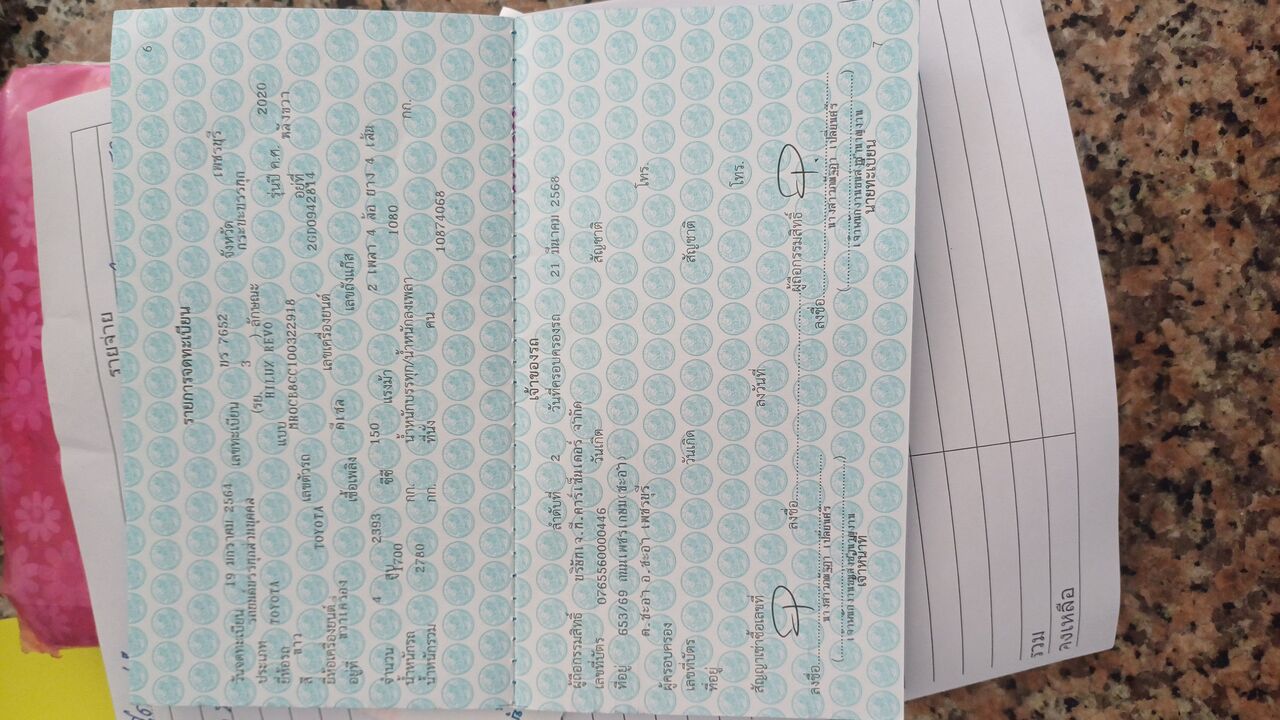 6
รายการจดทะเบียน
วันจดทะเบียน 19 มกราคม 2564 เลขทะเบียน 7652 จังหวัด เพชรบุรี
ประเภท รถยนต์บรรทุกส่วนบุคคล (รย. 3 ) ลักษณะ กระบะบรรทุก
ยี่ห้อรถ TOYOTA แบบ HILUX REVO รุ่นปี ค.ศ. 2020
สี ขาว เลขตัวรถ MR0CBACC100322918 อยู่ที่ หลังขวา
ยี่ห้อเครื่องยนต์ TOYOTA เลขเครื่องยนต์ 2GD0942814
อยู่ที่ ขวาเครื่อง เชื้อเพลิง ดีเซล เลขถังแก๊ส
จำนวน 4 สูบ 2393 ซีซี 150 แรงม้า 2 เพลา 4 ล้อ ยาง 4 เส้น
น้ำหนักรถ 1700 กก. น้ำหนักบรรทุก/น้ำหนักลงเพลา 1080 กก.
น้ำหนักรวม 2780 กก. ที่นั่ง คน 10874068
เจ้าของรถ
ลำดับที่ 2 วันที่ครอบครองรถ 21 มีนาคม 2568
ผู้ถือกรรมสิทธิ์ บริษัทเจ.ที.คาร์เซ็นเตอร์ จำกัด
เลขที่บัตร 0765560000446 วันเกิด สัญชาติ
ที่อยู่ 653/69 ถนนเพชรเกษม(ชะอำ)
ต.ชะอำ อ.ชะอำ เพชรบุรี โทร.
ผู้ครอบครอง
เลขที่บัตร วันเกิด สัญชาติ
ที่อยู่
โทร.
สัญญาเช่าซื้อเลขที่ ลงวันที่
ลงชื่อ ผู้ถือกรรมสิทธิ์
ลงชื่อ ลงชื่อ
เจ้าหน้าที่ นายทะเบียน
7
รายจ่าย
รวม
คงเหลือ